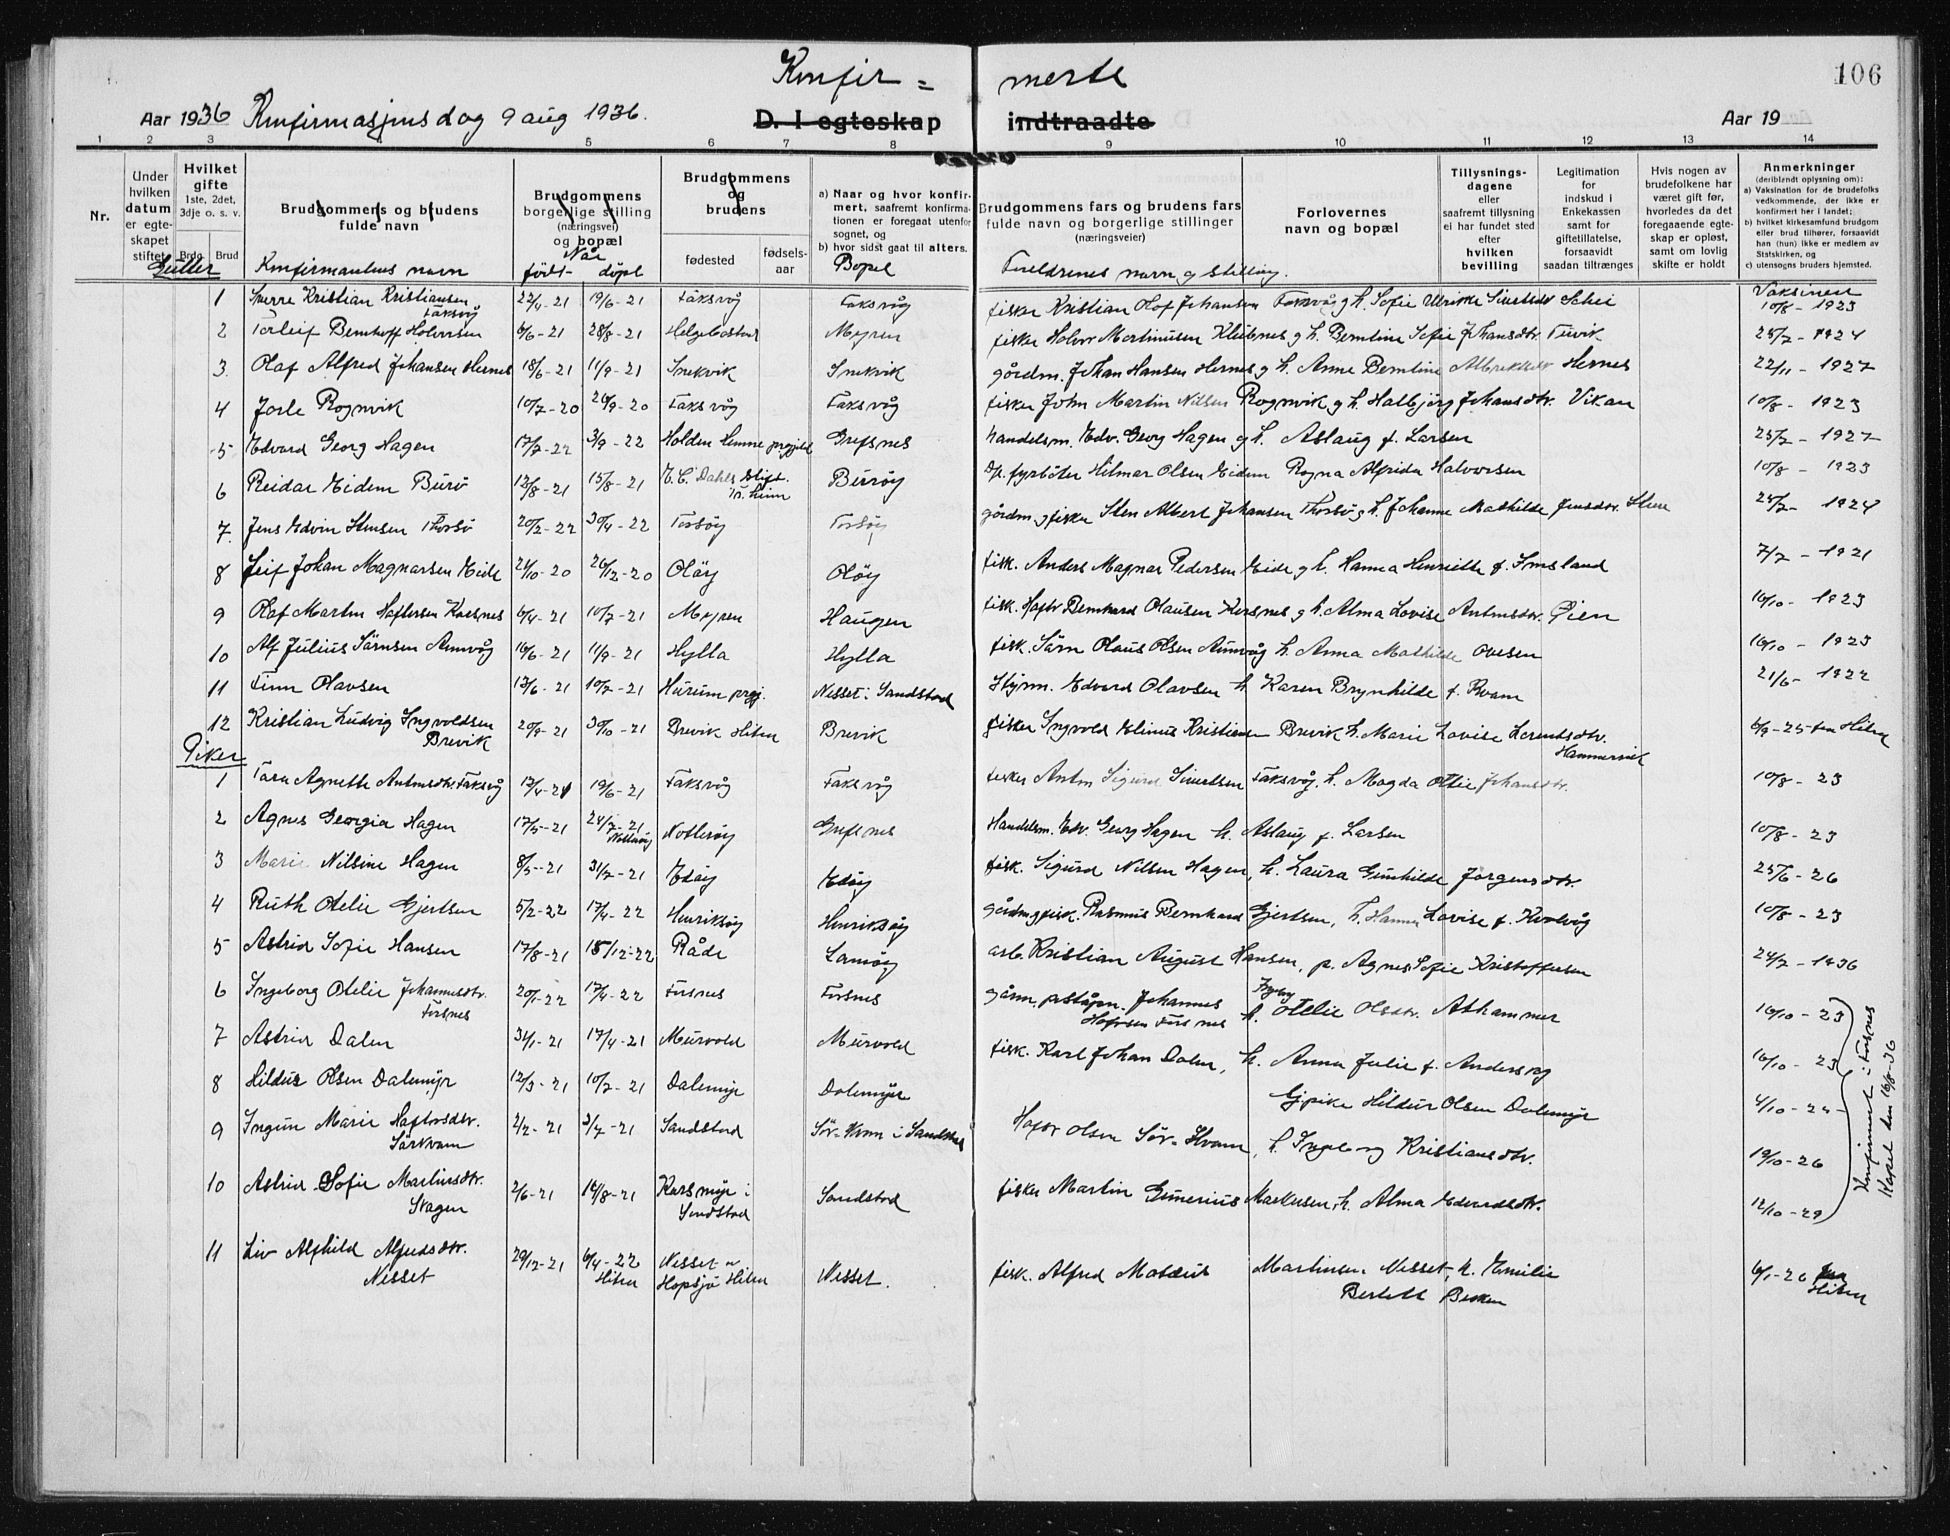 Konfir = merte
106
Aar 1936 Konfirmasjonsdag 9 aug 1936.
D. I egteskap indtraadte
Aar 19
1 2 3 4 5 6 7 8 9 10 11 12 13 14
Nr.
Under hvilken datum er egteskapet stiftet
Hvilket gifte 1ste, 2det, 3dje o. s. v.
Brdg. Brud
Brudgommens og brudens fulde navn
Brudgommens borgerlige stilling (næringsvei) og bopæl
Brudgommens og brudens
fødested fødselsaar
a) Naar og hvor konfirmert, saafremt konfirmationen er foregaat utenfor sognet, og
b) hvor sidst gaat til alters.
Brudgommens fars og brudens fars fulde navn og borgerlige stillinger (næringsveier)
Forlovernes navn og bopæl
Tillysningsdagene eller saafremt tillysning ei har fundet sted efter hvilken bevilling
Legitimation for indskud i Enkekassen samt for giftetillatelse, forsaavidt saadan tiltrænges
Hvis nogen av brudefolkene har været gift før, hvorledes da det foregaaende egteskap er opløst, samt om lovlig skifte er holdt
Anmerkninger (deriblandt oplysning om):
a) Vaksination for de brudefolks vedkommende, der ikke er konfirmert her i landet;
b) hvilket kirkesamfund brudgom eller brud tilhører, forsaavidt han (hun) ikke er medlem av Statskirken, og
c) utensogns bruders hjemsted.
Gutter Konfirmantens navn Når født døpt Bopel Foreldrenes navn og stilling. Vaksinert
1 Sverre Kristian Kristiansen Faksvåg 22/4-21 19/6-21 Faksvåg Faksvåg fisker Kristian Olaf Johansen Faksvåg og h. Sofie Ulrikke Sivertsdtr 10/8-1923
2 Torleif Bernhoff Holvrsen 6/6-21 28/8-21 Helgebostad Myren fisker Holvr Martinusen Klubnes og h. Berntine Sofie Johansdtr. 25/7-1924
3. Olaf Alfred Johansen Hernes 18/6-21 11/9-21 Snekvik Snekvik gårdm. Johan Hansen Hernes og h. Anne Berntine Albrektsdtr Hernes 22/11-1927
4 Jorle Rognvik 10/7-20 26/9-20 Faksvåg Faksvåg fisker John Martin Nilsen Rognvik og h. Halbjørg Johansdtr. Vikan 10/8-1923
5 Edvard Georg Hagen 17/7-22 3/9-22 Holden Hemne prgjeld Grefsnes handelsm. Edv. Georg Hagen og h. Aslaug f. Larsen 25/7-1927
6 Reidar Eidem Burø 12/8-21 15/8-21 E. C. Dahls Stift. Tr.heim Burøy Op. fyrbøter Hilmar Olsen Eidem Ragna Alfrida Halvorsen 10/8-1923
7. Jens Edvin Stensen Thorsø 20/2-22 30/4-22 Torsøy Torsøy gårdm. og fisker Sten Albert Johansen Thorsø og h. Johanne Mathilde Jensdtr. 25/7-1924
8 Leif Johan Magnarsen Eide 24/10-20 26/12-20 Oløy Oløy fisk. Anders Magnar Pedersen Eide og h. Hanna Henriette f. Smsland 7/7-1921
9 Olaf Martin Haftorsen Korsnes 6/4-21 10/7-21 Myren Haugen fisk. Haftor Bernhard Olausen Korsnes og h. Alma Lovise Antonsdtr. Øien 10/10-1923
10 Alf Julius Sørnsen Aunvåg 16/6-21 11/9-21 Hylla Hylla fisk. Sørn Olaus Olsen Aunvåg h. Anna Mathilde Ovesen 10/10-1923
11 Finn Olavsen 13/6-21 10/7-21 Hurum prgj. Nesset i Sandstad Styrm. Edvard Olavsen h. Karen Brynhilde f. Kvam 21/6-1922
12 Kristian Ludvig Ingvoldsen Brevik 20/9-21 30/10-21 Brevik Hitra Brevik fisker Ingvold Elinus Kristiansen Brevik h. Marie Lovise Lorentsdtr. Hammervik 6/9-25 fra Hitra
Piker
1 Tora Agnethe Antonsdtr. Faksvåg 12/4-21 19/6-21 Faksvåg Faksvåg fisker Anton Sigurd Sivertsen Faksvåg, h. Magda Otilie Johansdtr. 10/8-23
2 Agnes Georgia Hagen 17/5-21 24/7-21 Notterøy Notterøy Grefsnes Handelsm. Edv. Georg Hagen h. Aslaug f. Larsen 10/8-23
3 Marie Nilsine Hagen 8/5-21 31/7-21 Edøy Edøy fisk. Sigurd Nilsen Hagen, h. Laura Gunhilde Jørgensdtr. 25/6-26
4 Ruth Otelie Gjertsen 5/2-22 17/4-22 Henriksøy Henriksøy gårdm. og fisk. Rasmus Bernhard Gjertsen, h. Hanna Lovise f. Kvalvåg 10/8-23
5 Astrid Sofie Hansen 17/8-21 18/12-22 Råde Lamøy arb. Kristian August Hansen, p. Agnes Sofie Kristoffersen 24/7-1936
6 Ingeborg Otelie Johannesdtr. Forsnes 20/1-22 17/4-22 Forsnes Forsnes Johannes Hafrsen Forsnes h. Otelie Olsdtr. Askammer 10/10-23
7 Astrid Dalen 31/1-21 17/4-21 Murvold Murvold fisk. Karl Johan Dalen, h. Anna Julie f. Andersvåg 10/10-23
8 Hildur Olsen Dalemyr 12/3-21 10/7-21 Dalemyr Dalemyr Gpike Hildur Olsen Dalemyr 4/10-24
9 Ingun Marie Haftorsdtr. Sørkvam 2/2-21 3/7-21 Sandstad Sør-Kvam i Sandstad Haftor Olsen Sør-Kvam, h. Ingeborg Kristiansdtr. 19/10-26
10 Astrid Sofie Martinsdtr. Skagen 2/6-21 14/8-21 Korsmyr i Sandstad Sandstad fisker Martin Gunerius Markusen, h. Alma Edvardsdtr. 12/10-29
Konfirmert i Forsnes Kapel den 16/8-36
11 Liv Alfhild Alfredsdtr. Nesset 29/12-21 6/4-22 Hitra Nesset Hopsjø Hitra Nesset. fisk. Alfred Mateus Martinsen Nesset, h. Emilie 6/1-26 fra Hitra